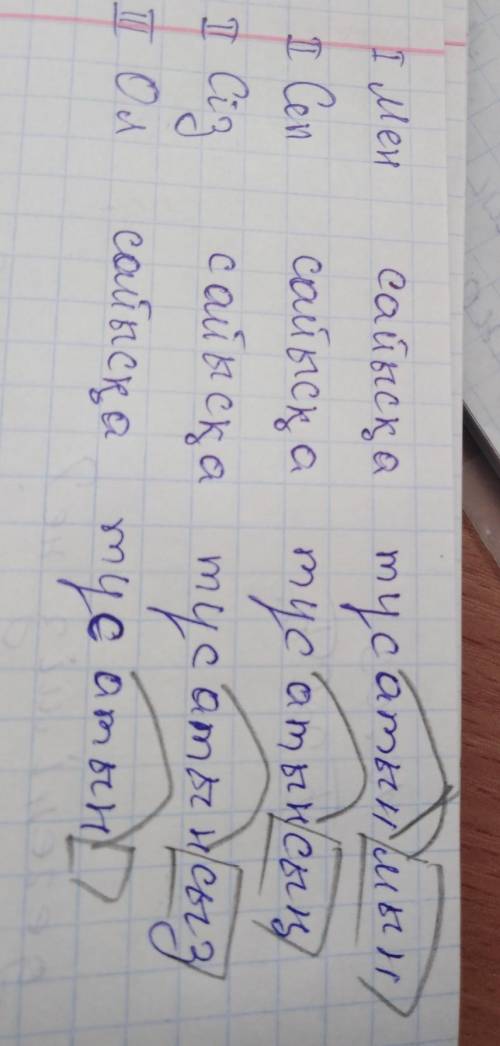 I Мен сайысқа тусатынмын
II Сен сайысқа тусатынсың
II Сіз сайысқа тусатынсыз
III Ол сайысқа тусатын